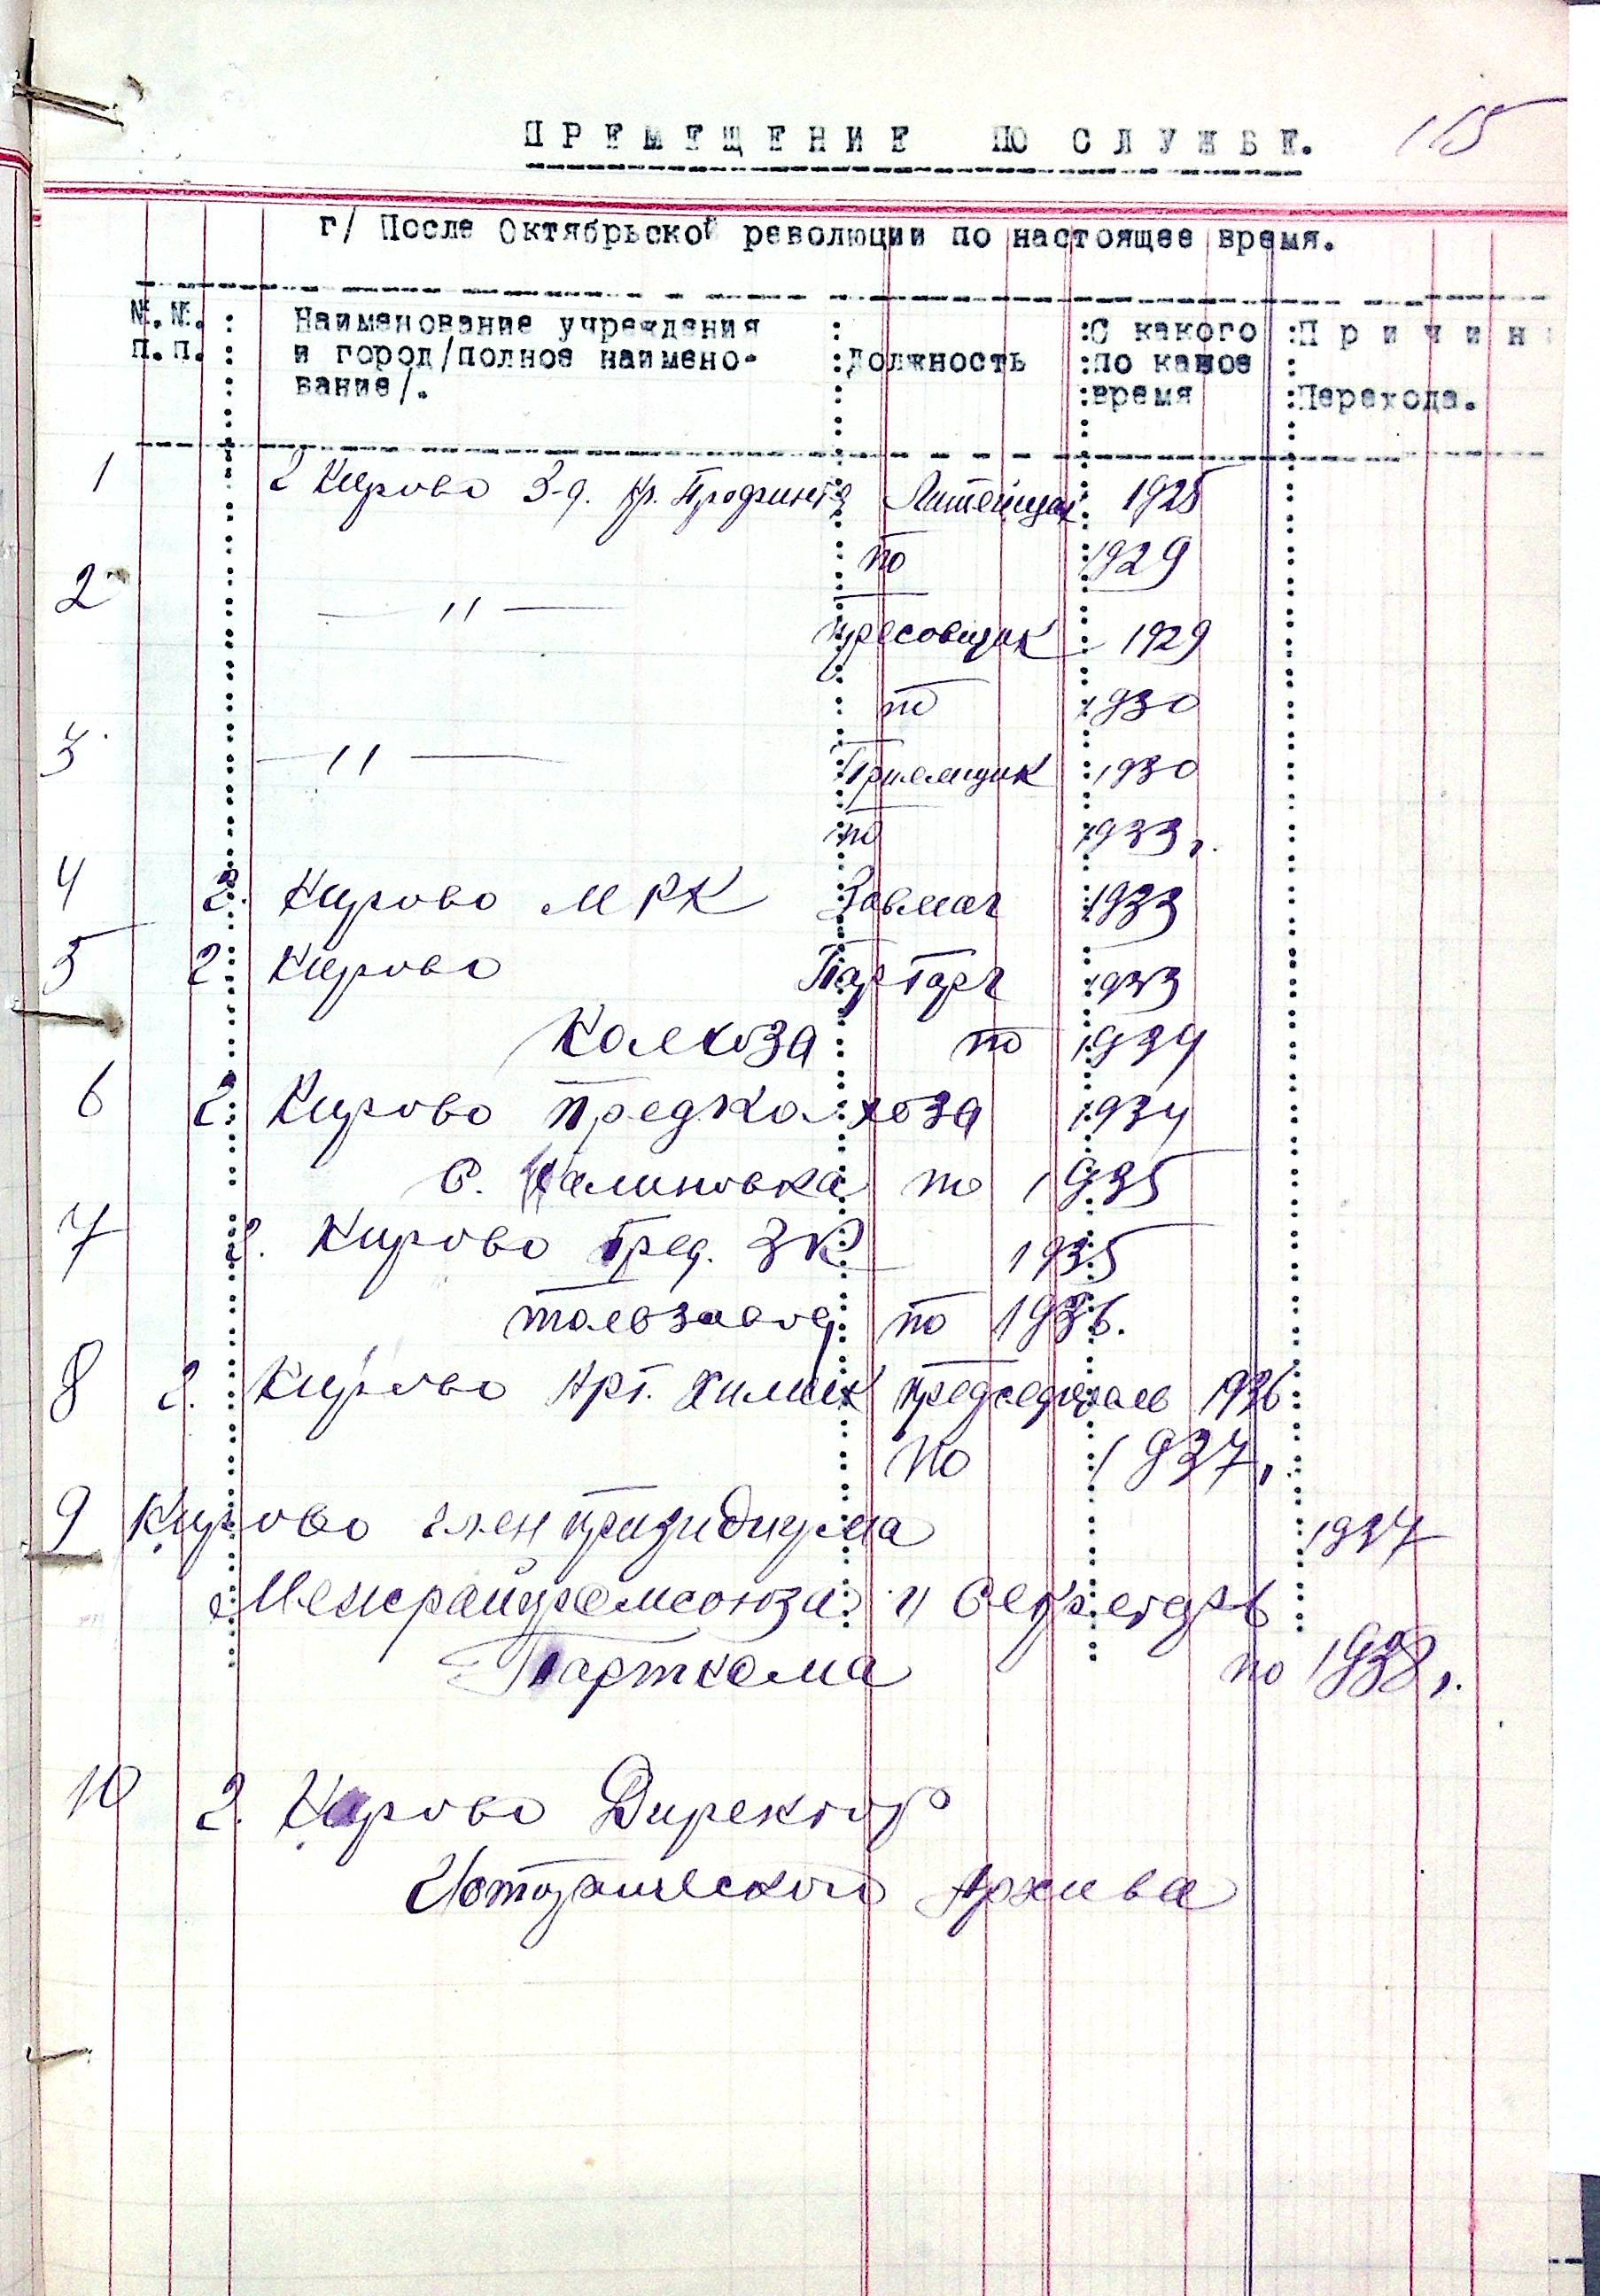 ПРЕМЕЩЕНИЕ ПО СЛУЖБЕ.
115
г/ После Октябрьской революции по настоящее время.
№.№. : Наименование учреждения : :С какого :Причин
п.п. : и город/полное наимено- :Должность :по какое :
: вание/. : :время :Перехода.
1 г Кирово З-д. Кр. Профинт. Литейщик 1925
по 1929
2 — " — пресовщик 1929
по 1930
3 — " — Приемщик 1930
по 1933 г.
4 г. Кирово МРК Завмаг 1933
5 г. Кирово Парторг 1933
Колхоза по 1934
6 г. Кирово Предколхоза 1934
С. Калиновка по 1935
7 г. Кирово Пред. ЗК 1935
толезавод по 1936.
8 г. Кирово Арт. Химик председатель 1936
по 1937.
9 Кирово член призидиума 1937
Межрайпромсоюза и Секретарь
Парткома по 1938 г.
10 г. Кирово Директор
Исторического Архива